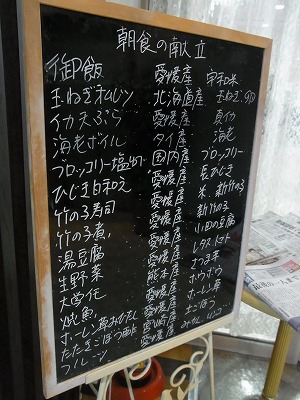 朝食の献立
御飯 愛媛産 宇和米
玉ねぎオムレツ 北海道産 玉ねぎ、卵
イカ天ぷら 愛媛産 真イカ
海老ボイル タイ産 海老
ブロッコリー塩ゆで 国内産 ブロッコリー
ひじき白和え 愛媛産 左ひじき
竹の子寿司 愛媛産 米、新竹の子
竹の子煮 愛媛産 新竹の子
湯豆腐 愛媛産 小田の豆腐
生野菜 愛媛産 レタス、トマト
大学芋 熊本産 さつま芋
焼魚 愛媛産 ホウボウ
ホーレン草おひたし 愛媛産 ホーレン草
たたきごぼう 宮崎産 土ごぼう
フルーツ 愛媛産 みかん